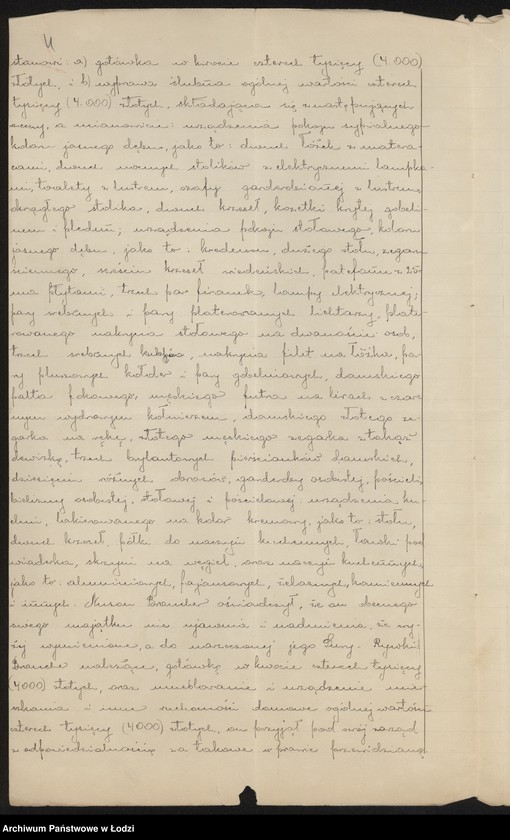 stanowi: a) gotówka w kwocie czterech tysięcy (4.000)
złotych, i b) wyprawa ślubna ogólnej wartości czterech
tysięcy (4.000) złotych, składająca się z następujących
rzeczy, a mianowicie: urządzenia pokoju sypialnego
koloru jasnego dębu, jako to: dwuch łóżek z matera-
cami, dwuch nocnych stolików z elektrycznemi lampka-
mi, toalety z lustrem, szafy garderobianej z lustrem,
okrągłego stolika, dwuch krzeseł, kozetki krytej gobel-
nem i pledem; urządzenia pokoju stołowego, koloru
jasnego dębu, jako to: kredensu, dużego stołu, zegaru
ściennego, sześciu krzeseł wiedeńskich, patefonu z 25-
ma płytami, trzech par firanek, lampy elektrycznej;
pary srebrnych i pary platerowanych lichtarzy, plate-
rowanego nakrycia stołowego na dwanaście osób,
trzech srebrnych kubków, nakrycia filet na łóżka, pa-
ry pluszowych kołder i pary gobelinowych, damskiego
palta fokowego, męskiego futra na lirach z czar-
nym wydrowym kołnierzem, damskiego złotego ze-
garka na rękę, złotego męskiego zegarka z łańcuszkiem
dewizką, trzech brylantowych pierścionków damskich,
dziesięciu różnych obrazów, garderoby osobistej, pościeli,
bielizny osobistej, stołowej i pościelowej; urządzenia ku-
chni, lakierowanego na kolor kremowy, jako to: stołu,
dwuch krzeseł, półki do naczyń kuchennych, ławki pod
wiaderka, skrzyni na węgiel, oraz naczyń kuchennych,
jako to: aluminiowych, fajansowych, żelaznych, kamiennych
i innych. Nuson Brauner oświadczył, że on obecnego
swego majątku nie ujawnia i nadmienia, że wy-
żej wymienione, a do narzeczonej jego Sury-Rywki
Brauner należące, gotówkę w kwocie czterech tysięcy
(4000) złotych, oraz umeblowanie i urządzenie mie-
szkania i inne ruchomości domowe ogólnej wartości
czterech tysięcy (4000) złotych, on przyjął pod swój zarząd
z odpowiedzialnością za takowe w prawie przewidzianą
Archiwum Państwowe w Łodzi